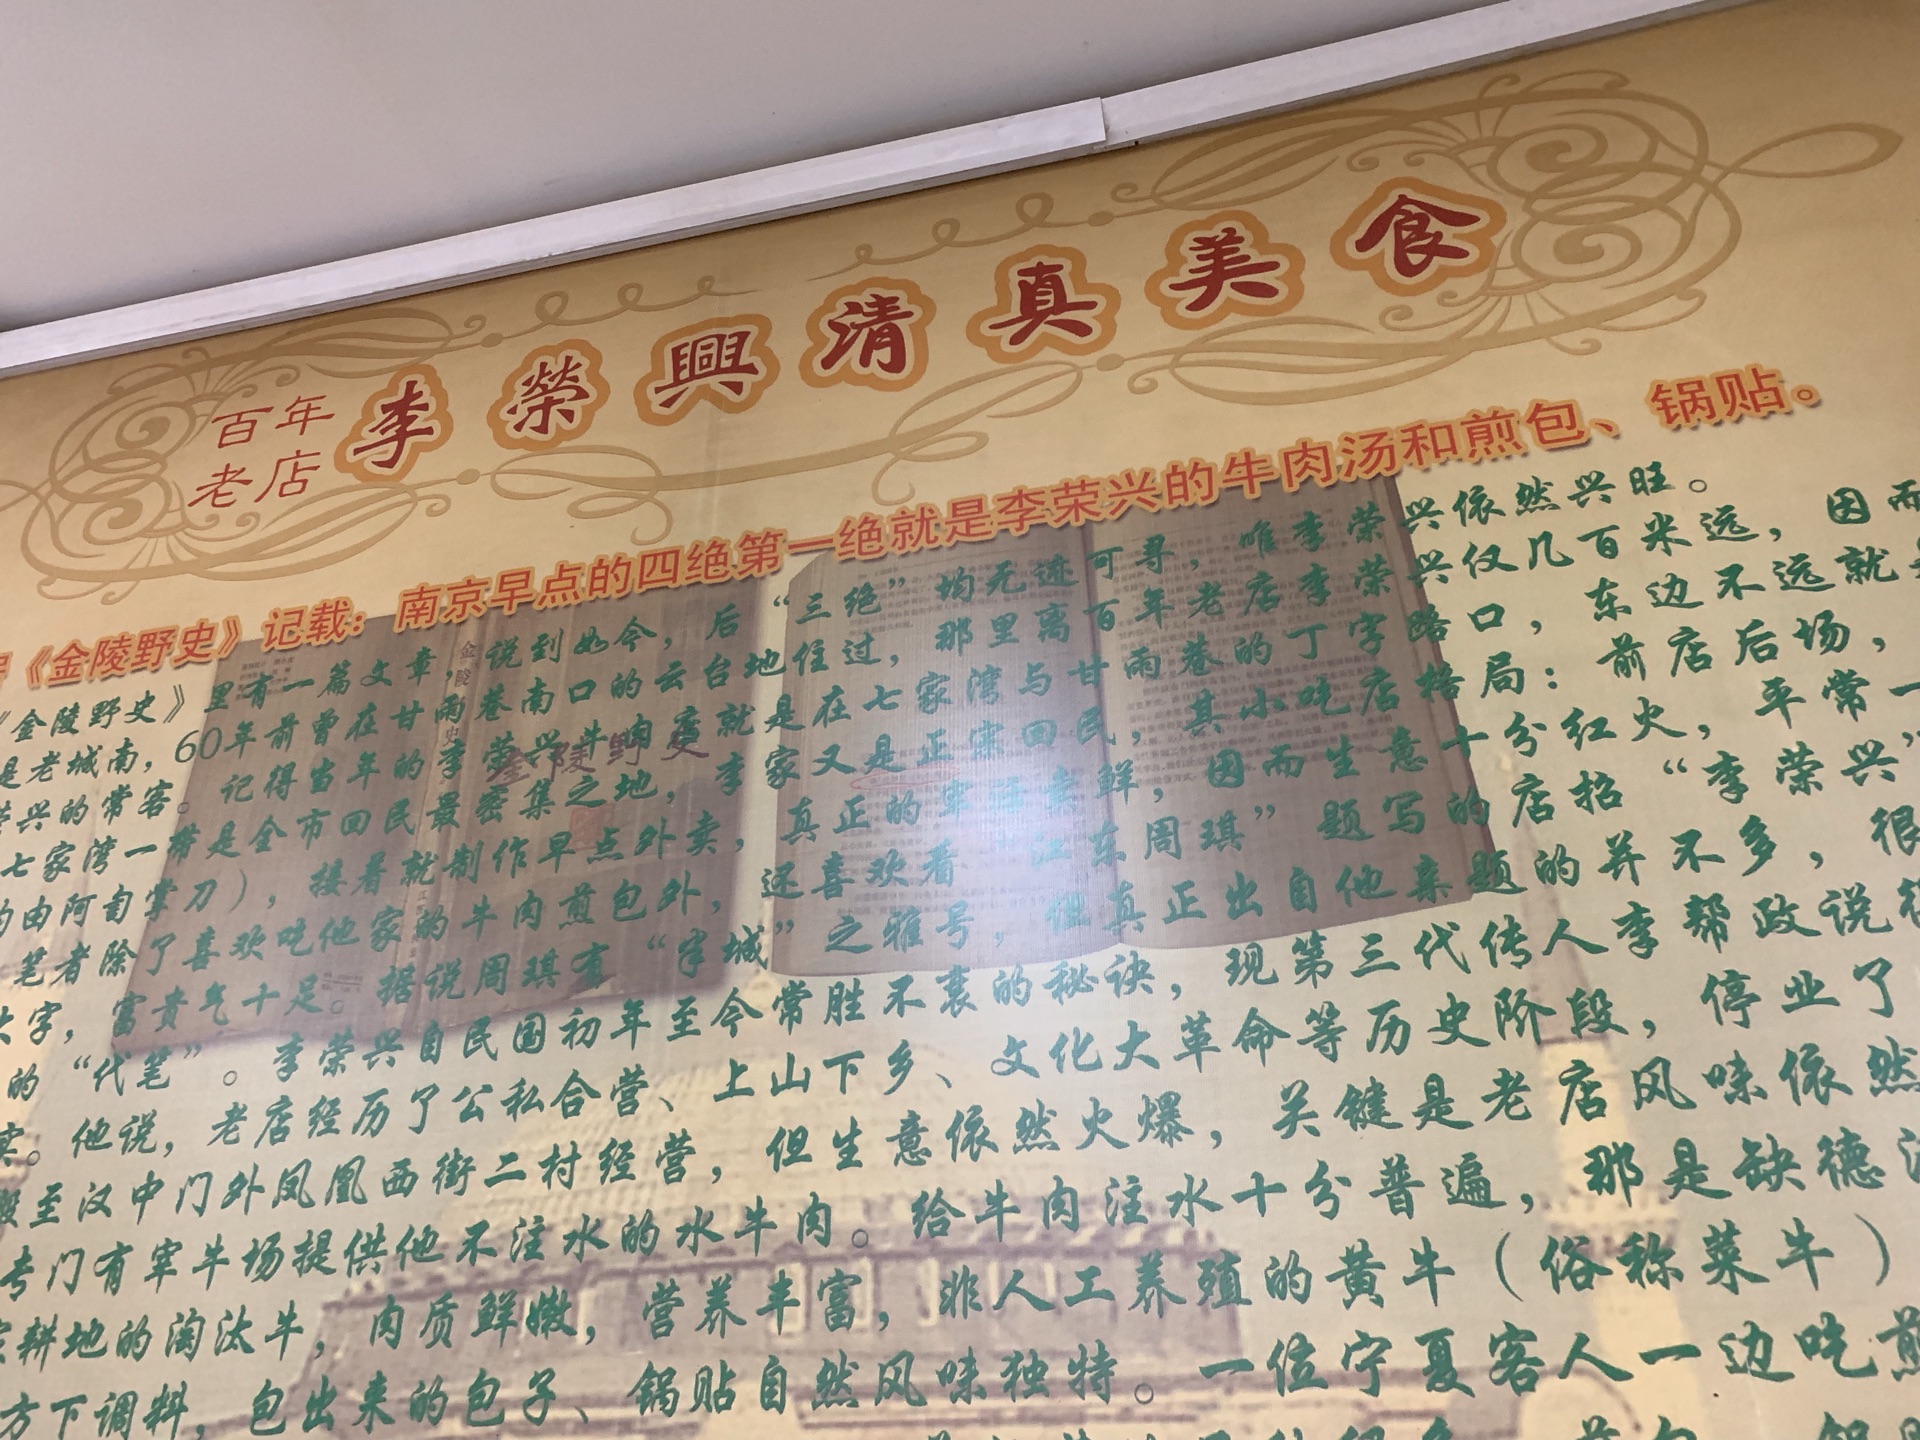 百年
老店
李榮興清真美食
《金陵野史》记载：南京早点的四绝第一绝就是李荣兴的牛肉汤和煎包、锅贴。
《金陵野史》里有一篇文章，说到如今，后“三绝”均无迹可寻，唯李荣兴依然兴旺。
是老城南，60年前曾在甘雨巷南口的云台地住过，那里离百年老店李荣兴仅几百米远，因而
荣兴的常客。记得当年的李荣兴牛肉店就是在七家湾与甘雨巷的丁字路口，东边不远就是
七家湾一带是全市回民最密集之地，李家又是正宗回民，其小吃店格局：前店后场，
的由阿訇掌刀），接着就制作早点外卖，真正的宰活卖鲜，因而生意十分红火，平常一
笔者除了喜欢吃他家的牛肉煎包外，还喜欢看“江东周琪”题写的店招“李荣兴”
大字，富贵气十足。据说周琪有“半城”之雅号，但真正出自他亲题的并不多，很
的“代笔”。李荣兴自民国初年至今常胜不衰的秘诀，现第三代传人李帮政说得
实。他说，老店经历了公私合营、上山下乡、文化大革命等历史阶段，停业了
至汉中门外凤凰西街二村经营，但生意依然火爆，关键是老店风味依然
专门有宰牛场提供他不注水的水牛肉。给牛肉注水十分普遍，那是缺德
耕地的淘汰牛，肉质鲜嫩，营养丰富，非人工养殖的黄牛（俗称菜牛）
方下调料，包出来的包子、锅贴自然风味独特。一位宁夏客人一边吃煎
金陵野史